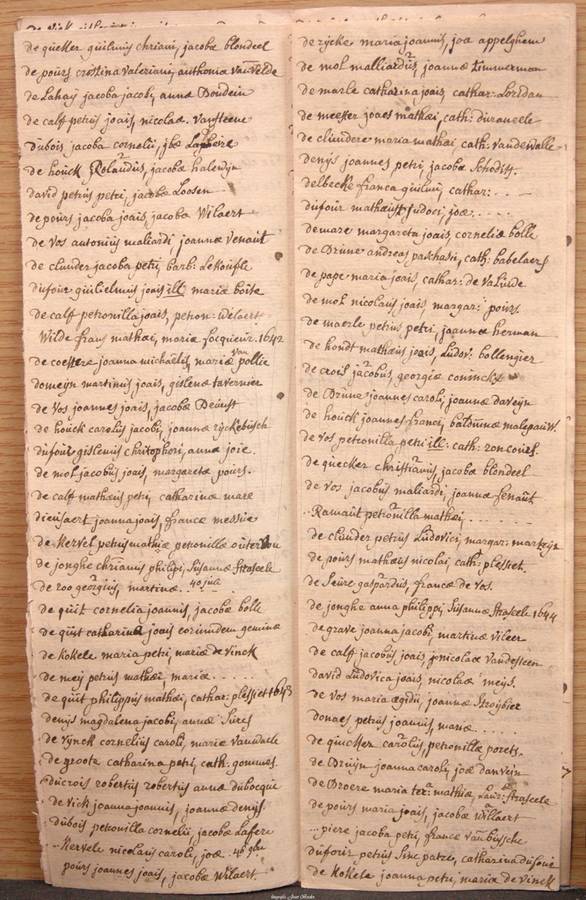 de quecker guilmus chriani, jacobæ blondeel
de pours cristina valeriani, anthonia van Velde
de Lahaij jacoba jacobi, annæ Boudein
de calf petrus joais, nicolaæ vansteene
Dubois jacoba cornelii, jbæ
de houck Rolandus, jacobæ halewijn
david petrus petri, jacobæ Loosen
de pours jacoba joais, jacobæ Wilaert
de Vos antonius maliardi joannæ Venaut
de clunder jacoba petri, barb: Lekoufle
dufour guilielmus joais ill: mariæ boise
de calf petronilla joais, petron: Welaert
Wilde frans mathei, mariæ facquieur. 1642
de coestere joanna michaelis, mariæ van pollie
domeijn martinus joais, gislenæ tavernier
de Vos joannes joais, jacobæ Deunst
de houck carolus jacobi, joannæ rijckebusch
dufour gislenus christophori, annæ joie.
de mol jacobus joais, margaretæ pours.
de calf mathæus petri, catharinæ mare
dieusaert joanna joais, francæ messiæ
de Kervel petrus mathiæ petronillæ
de jonghe chrianus philipi, Susannæ Strascele
de roo georgius, martinæ.. 40 julii
de quit cornelia joannis, jacobæ bolle
de quit catharina joais eorumdem geminæ
de Kokele maria petri, mariæ de Vinck
de meij petrus mathei, mariæ . . . .
de quit philippus mathæi, cathar: plessiet 1643
denijs magdalena jacobi, annæ Sures
de Vijnck cornelius caroli, mariæ Vanwaele
de groote catharina petri, cath: gommes.
ducrois robertus robertus annæ dubocque
de Vick joanna joannis, joannæ denijs.
dubois petronilla cornelii, jacobæ Lafere
.. Kervele nicolaus caroli, joæ. 46
pours joannes joais, jacobæ Wilaert.
de rijcke maria joannis, joæ appelghem
de mol malliardus, joannæ Timmerman
de marle catharina joais, cathar: Loridan
de meester joaes mathæi, cath: duraneele
de cleundere maria mathæi, cath: Vandewalle
denijs joannes petri, jacobæ Schodits.
delbecke franca guilmi, cathar: . .
dufour mathæus judoci, joæ. . . .
demare margareta joais, corneliæ bolle
de Brune andreas paschasii, cath: babelaers
de pape maria joais, cathar: de Valinde
de mol nicolaus joais, margar: pours.
de maerle petrus petri, joannæ herman
de hondt mathæus joais, Ludov: bollengier
de croil jacobus, georgiæ coninckx
de Brune joannes caroli, joannæ daveijn
de houck joannes franci, malegaut.
de Vos petronilla petri ill: cath: roncours.
de quecker christianus, jacobæ blondeel
de vos jacobus maliardi, joannæ fenaut
.. Ramaut petronilla mathei, . . . . .
de clunder petrus Ludovici, margar: marteijn
de pours mathæus nicolai, cath: plessiet.
de Seure gaspardus, francæ de Vos.
de jonghe anna philippi, Susannæ Strascele 1644
de grave joanna jacobi, martinæ vileer
de calf jacobus joais, nicolaæ Vandesteen
david Ludovica joais, nicolaæ meijs.
de Vos maria ægidii, joannæ Stroijbier
donaes petrus joannis, mariæ . . . .
de quecker carolus, petronillæ porets.
de Bruijn joanna caroli, joæ danvein
de Broere maria mathiæ, Strascele
de pours maria joais, jacobæ Willaert
... piere jacoba petri, francæ van buijsche
dufour petrus catharina dufour
de Kokele joanna petri, mariæ de Vinck